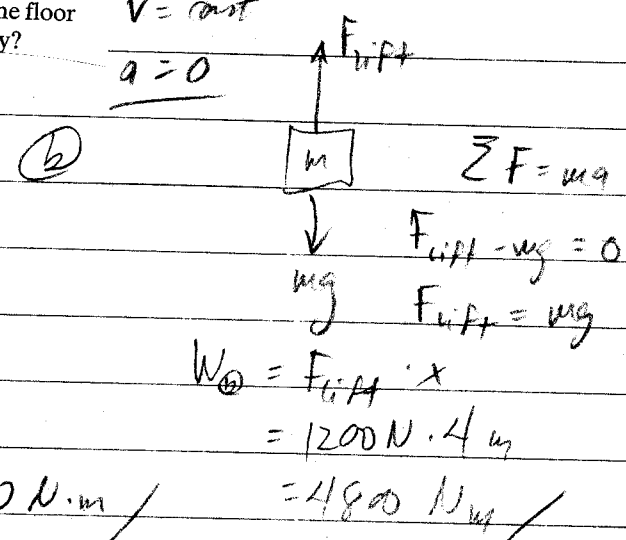 ne floor
V = const
y?
a = 0
F lift
b
m
ΣF = ma
F lift - mg = 0
mg
F lift = mg
W b = F lift · x
= 1200 N · 4 m
0 N·m /
= 4800 Nm /